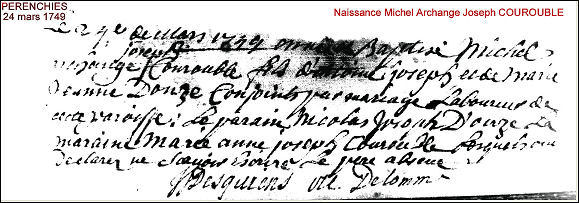 PERENCHIES
24 mars 1749
Naissance Michel Archange Joseph COUROUBLE
Le 24e de Mars 1749 Baptisé Michel
joseph
archange Courouble fils d'antoine joseph et de marie
jeanne Donze Conjoints par mariage Laboureur de
cette paroisse: Le parain Nicolas Joseph Donze La
maraine Marie anne joseph Courouble Lesquels ont
declarez ne Scavoir Ecrire Le pere absent
Desquiens vic. Delomme